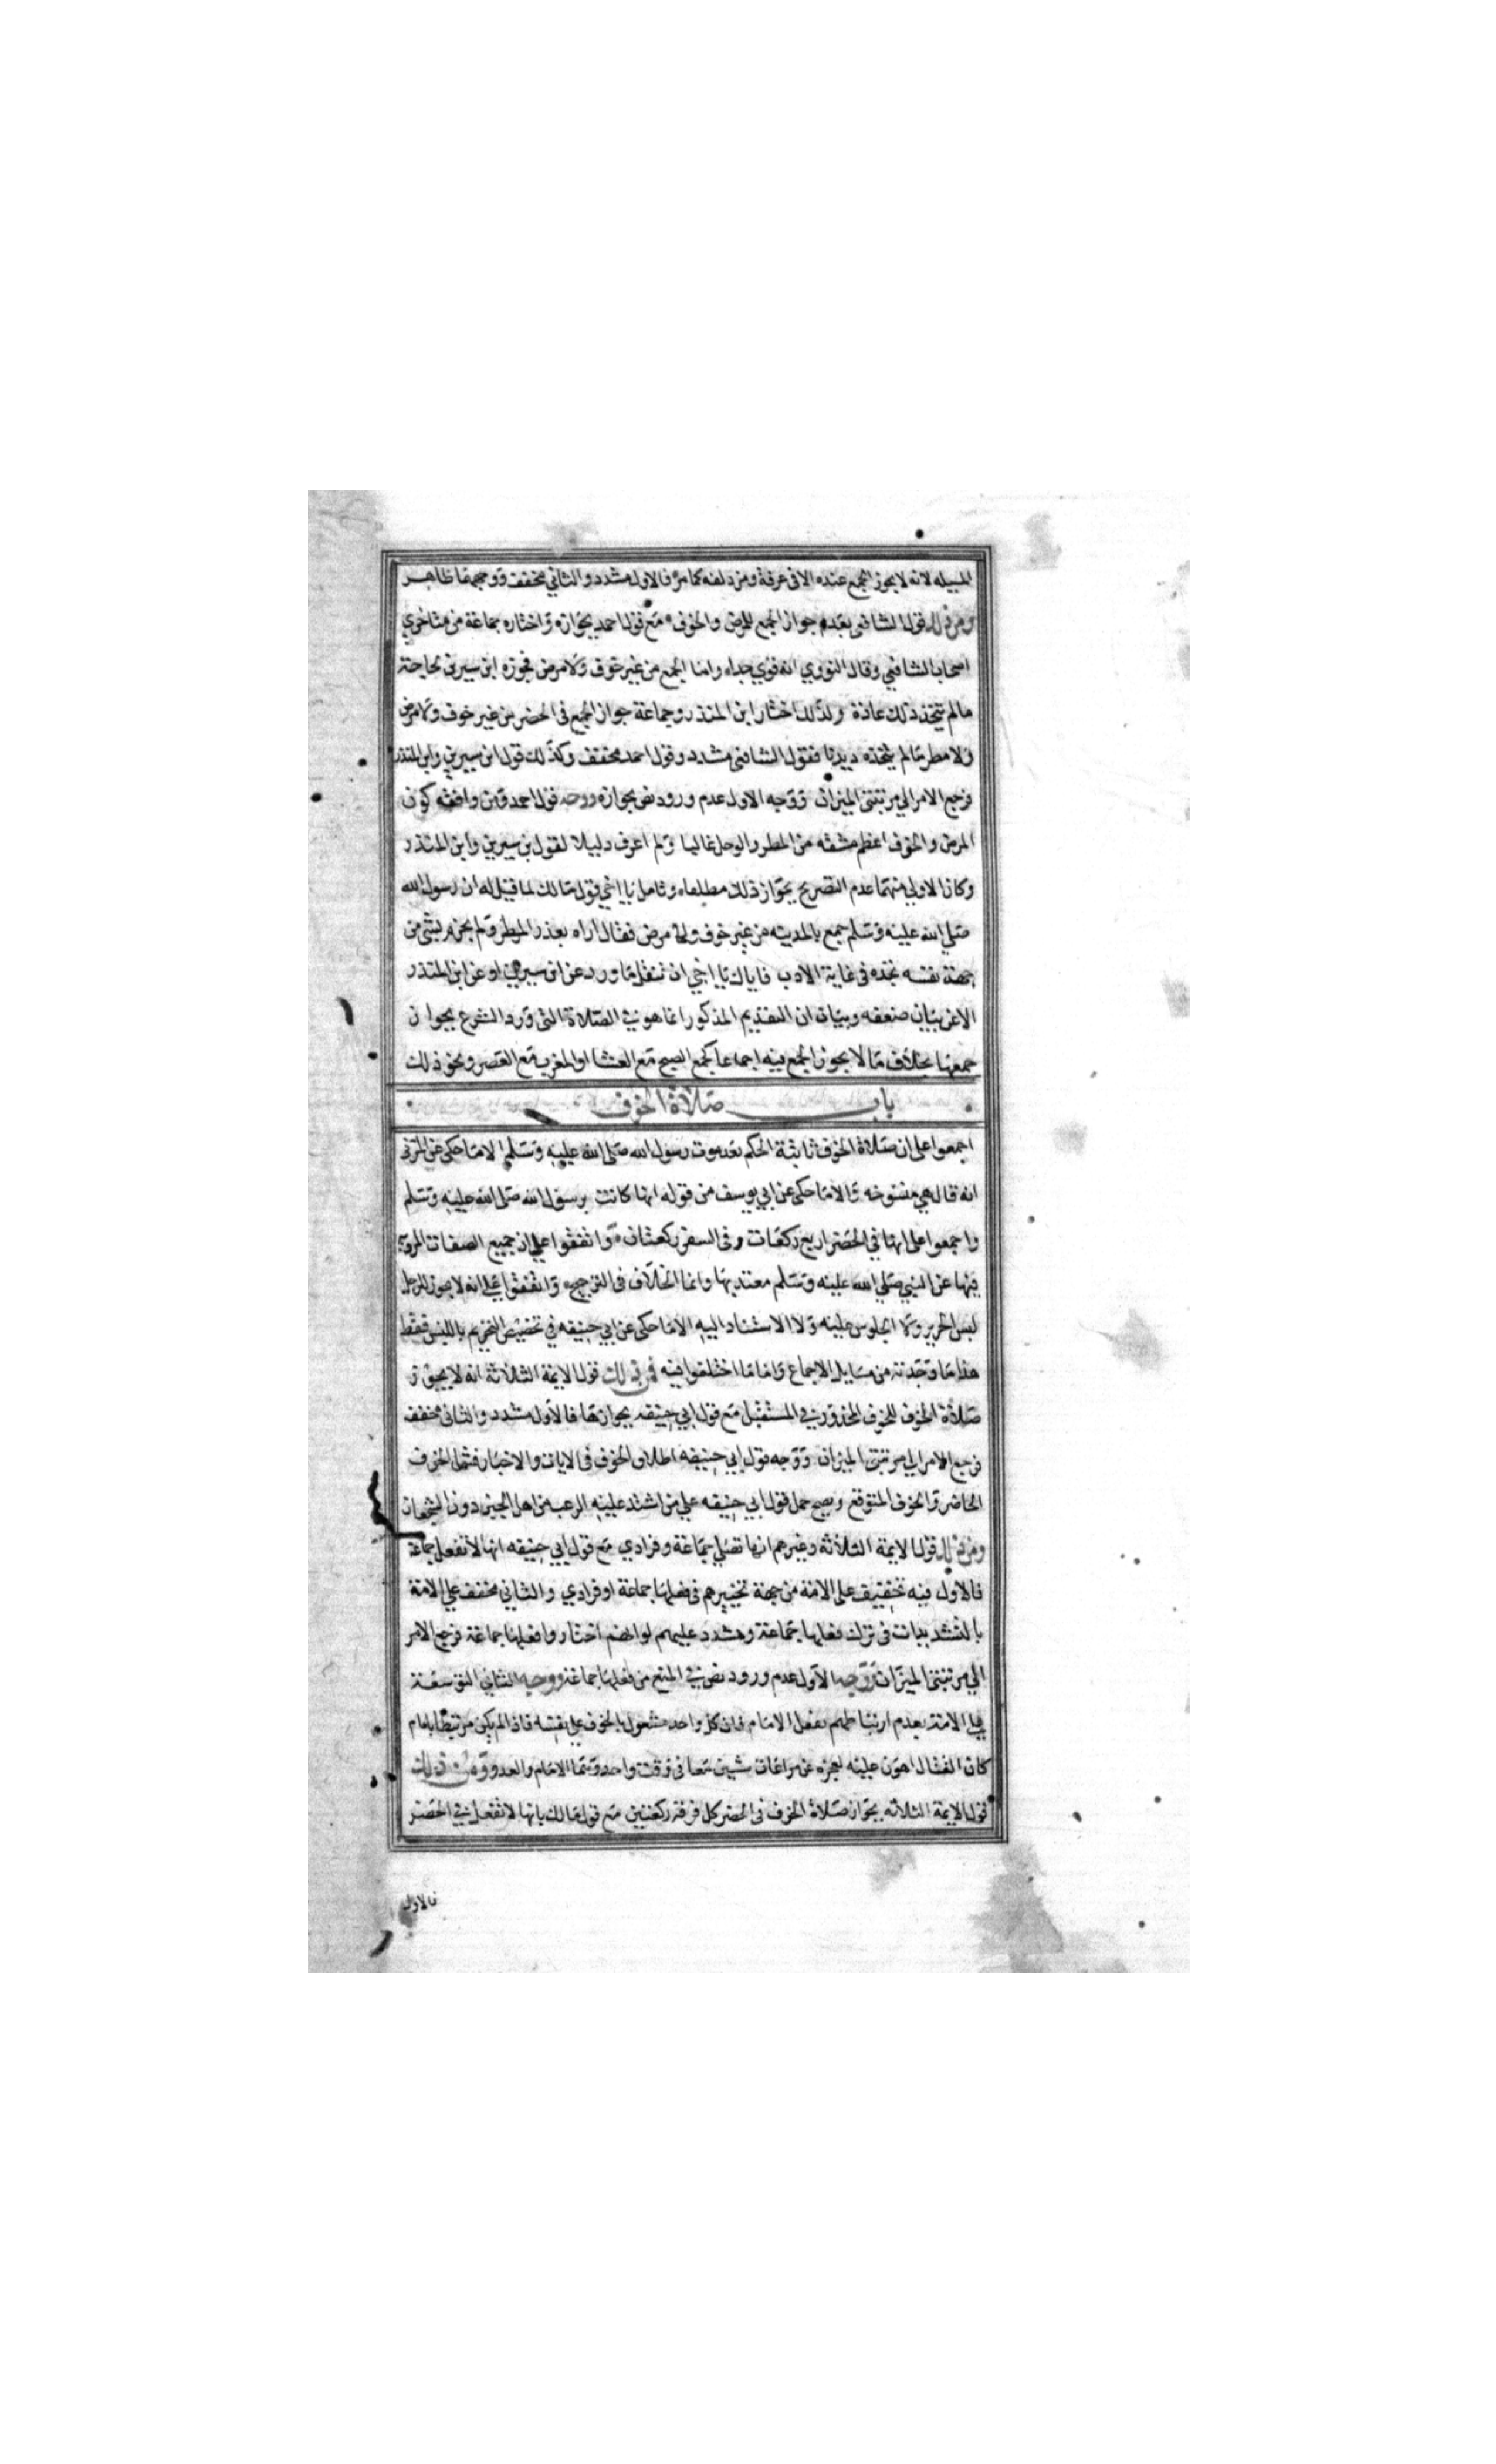 المسيله لانه لا يجوز الجمع عنده الا فى عرفة ومزدلفه كما مر فالاول مشدد والثاني مخفف ووجههما ظاهر
ومن ذلك قول الشافعى بعدم جواز الجمع للمرض والخوف مع قول احمد بجوازه واختاره جماعة من متاخري
اصحاب الشافعي وقال النووي انه قوي جدا واما الجمع من غير خوف ولا مرض فجوزه ابن سيرين لحاجة
مالم يتخذ ذلك عادة ولذلك اختار ابن المنذر وجماعة جواز الجمع فى الحضر من غير خوف ولا مرض
ولا مطر مالم يتخذه ديدنا فقول الشافعى مشدد وقول احمد مخفف وكذلك قول ابن سيرين وابن المنذر
فرجع الامر الي مرتبتى الميزان ووجه الاول عدم ورود نص بجوازه ووجه قول احمد ومن وافقه كون
المرض والخوف اعظم مشقه من المطر والوحل غالبا ولم اعرف دليلا لقول ابن سيرين وابن المنذر
وكان الاولي منهما عدم التصريح بجواز ذلك مطلقا وتامل يا اخي قول مالك لما قيل له ان رسول الله
صلي الله عليه وسلم جمع بالمدينه من غير خوف ولا مرض فقال اراه بعذر المطر ولم يجزم بشى من
جهة نفسه تجده فى غاية الادب فاياك يا اخي ان تنقل ما ورد عن ابن سيرين او عن ابن المنذر
الا عن بيان ضعفه وبيان ان التقديم المذكور انما هو في الصلاة التى ورد الشرع بجواز
جمعها بخلاف ما لا يجوز الجمع فيه اجماعا كجمع الصبح مع العشا او المغرب مع العصر ونحو ذلك
باب صلاة الخوف
اجمعوا على ان صلاة الخوف ثابتة الحكم بعد موت رسول الله صلى الله عليه وسلم الا ما حكى عن المزنى
انه قال هي منسوخه والا ما حكى عن ابي يوسف من قوله انها كانت برسول الله صلى الله عليه وسلم
واجمعوا على انها في الحضر اربع ركعات وفى السفر ركعتان واتفقوا علي ان جميع الصفات المروية
فيها عن النبي صلي الله عليه وسلم معتد بها وانما الخلاف فى الترجيح واتفقوا على انه لا يجوز للرجل
لبس الحرير ولا الجلوس عليه ولا الاستناد اليه الا ما حكى عن ابي حنيفه في تخصيص التحريم باللبس فقط
هذا ما وجدته من مسايل الاجماع واما ما اختلفوا فيه فمن ذلك قول الايمة الثلاثة انه لا يجوز
صلاة الخوف للخوف المحذور في المستقبل مع قول ابي حنيفه بجوازها فالاول مشدد والثانى مخفف
فرجع الامر الي مرتبتى الميزان ووجه قول ابي حنيفه اطلاق الخوف فى الايات والاخبار فشمل الخوف
الحاضر والخوف المتوقع ويصح حمل قول ابي حنيفه علي من اشتد عليه الرعب من اهل الجبن دون الشجعان
ومن ذلك قول الايمة الثلاثه وغيرهم انها تصلي جماعة وفرادي مع قول ابي حنيفه انها لا تفعل جماعة
فالاول فيه تخفيف على الامة من جهة تخييرهم فى فعلها جماعة او فرادي والثاني مخفف علي الامة
بالتشديدات فى ترك فعلها جماعة ومشدد عليهم لو انهم اختاروا فعلها جماعة فرجع الامر
الي مرتبتى الميزان ووجه الاول عدم ورود نص في المنع من فعلها جماعة ووجه الثاني التوسعة
على الامة بعدم ارتباطهم بفعل الامام فان كل واحد مشغول بالخوف علي نفسه فاذا لم يكن مرتبطا بامام
كان القتال اهون عليه لعجزه عن مراعات شيين معا فى وقت واحد وهما الامام والعدو ومن ذلك
قول الايمة الثلاثه بجواز صلاة الخوف فى الحضر كل فرقة ركعتين مع قول مالك بانها لا تفعل في الحضر
فالاول